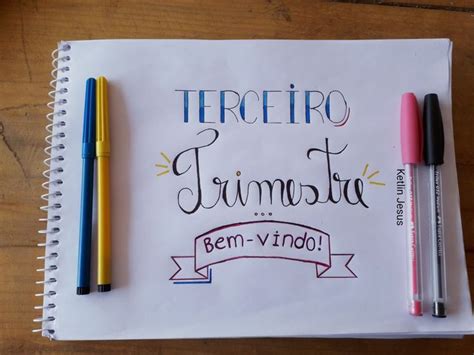 TERCEIRO
Trimestre
...
Bem-vindo!
Ketlin Jesus